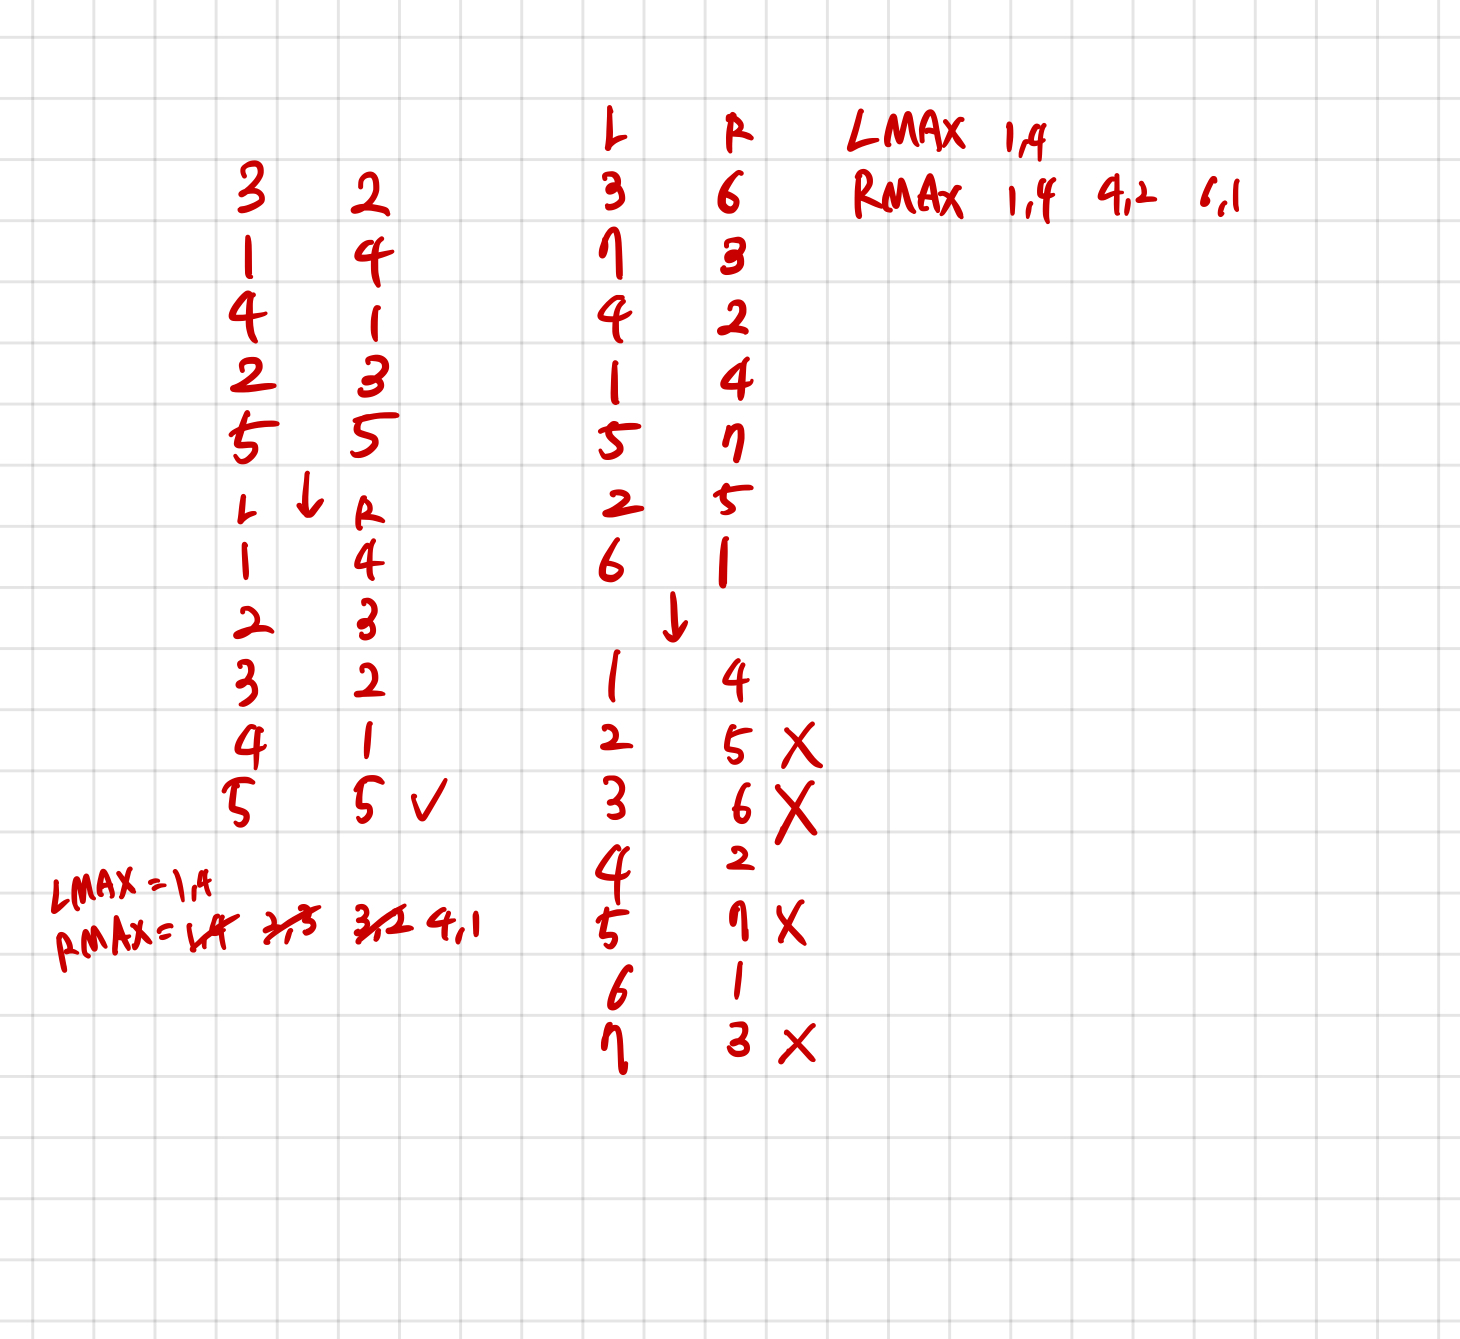 3 2
1 4
4 1
2 3
5 5
↓
L R
1 4
2 3
3 2
4 1
5 5 ✓
LMAX = 1,4
RMAX = 1,4 2,3 3,2 4,1
L R
3 6
7 3
4 2
1 4
5 7
2 5
6 1
↓
1 4
2 5 X
3 6 X
4 2
5 7 X
6 1
7 3 X
LMAX 1,4
RMAX 1,4 4,2 6,1